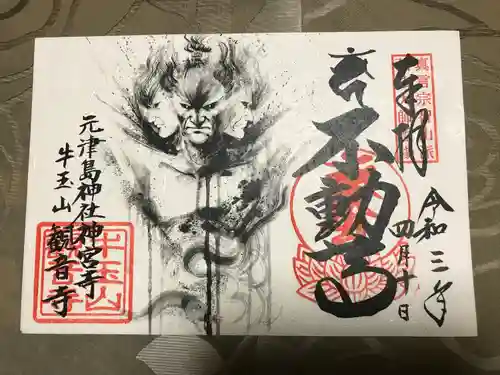 奉拝
真言宗
令和三年
四月十日
不動
元津島神社神宮寺
牛玉山 観音寺
牛玉山